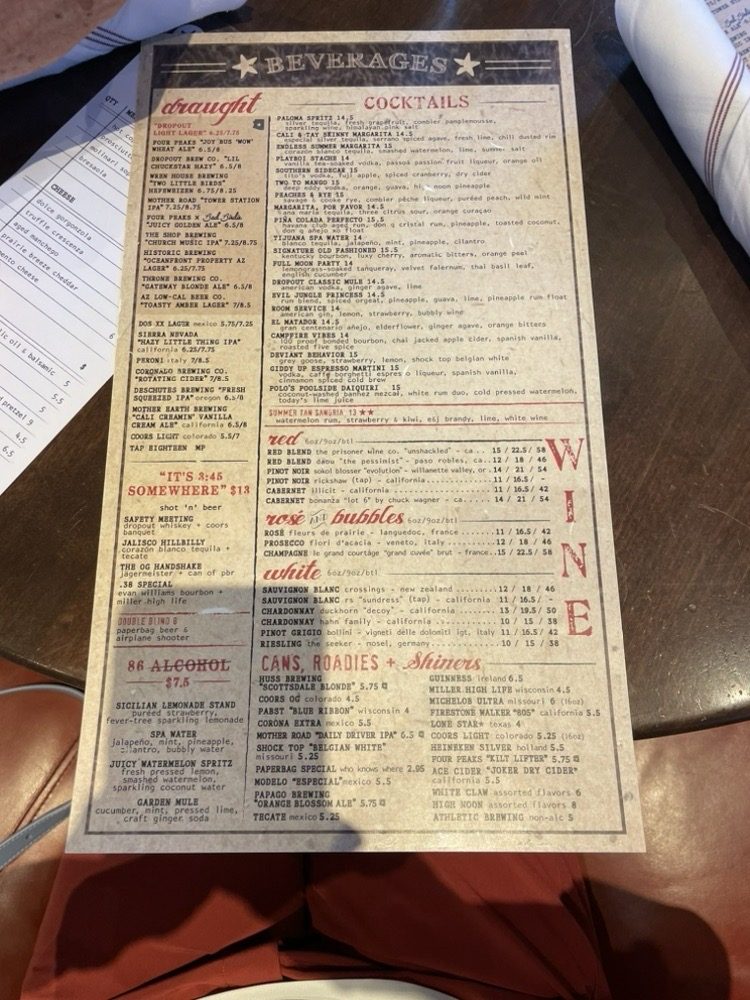 BEVERAGES
draught
"DROPOUT
LIGHT LAGER" 6.25/7.75
FOUR PEAKS "JOY BUS 'WOW'
WHEAT ALE" 6.5/8
DROPOUT BREW CO. "LIL
CHUCKSTAR HAZY" 6.5/8
WREN HOUSE BREWING
"TWO LITTLE BIRDS"
HEFEWEIZEN 6.75/8.25
MOTHER ROAD "TOWER STATION
IPA" 7.25/8.75
FOUR PEAKS x Bad Birdie
"JUICY GOLDEN ALE" 6.5/8
THE SHOP BREWING
"CHURCH MUSIC IPA" 7.25/8.75
HISTORIC BREWING
"OCEANFRONT PROPERTY AZ
LAGER" 6.25/7.75
THRONE BREWING CO.
"GATEWAY BLONDE ALE" 6.5/8
AZ LOW-CAL BEER CO.
"TOASTY AMBER LAGER" 7/8.5
DOS XX LAGER mexico 5.75/7.25
SIERRA NEVADA
"HAZY LITTLE THING IPA"
california 6.25/7.75
PERONI italy 7/8.5
CORONADO BREWING CO.
"ROTATING CIDER" 7/8.5
DESCHUTES BREWING "FRESH
SQUEEZED IPA" oregon 6.5/8
MOTHER EARTH BREWING
"CALI CREAMIN' VANILLA
CREAM ALE" california 6.5/8
COORS LIGHT colorado 5.5/7
TAP EIGHTEEN MP
"IT'S 3:45
SOMEWHERE" $13
shot 'n' beer
SAFETY MEETING
dropout whiskey + coors
banquet
JALISCO HILLBILLY
corazón blanco tequila +
tecate
THE OG HANDSHAKE
jägermeister + can of pbr
.38 SPECIAL
evan williams bourbon +
miller high life
DOUBLE BLIND 8
paperbag beer &
airplane shooter
86 ALCOHOL
$7.5
SICILIAN LEMONADE STAND
puréed strawberry,
fever-tree sparkling lemonade
SPA WATER
jalapeño, mint, pineapple,
cilantro, bubbly water
JUICY WATERMELON SPRITZ
fresh pressed lemon,
smashed watermelon,
sparkling coconut water
GARDEN MULE
cucumber, mint, pressed lime,
craft ginger soda
COCKTAILS
PALOMA SPRITZ 14.5
silver tequila, fresh grapefruit, combier pamplemousse,
sparkling wine, himalayan pink salt
CALI & TAY SKINNY MARGARITA 14.5
especial silver tequila, serrano spiced agave, fresh lime, chili dusted rim
ENDLESS SUMMER MARGARITA 15
corazón blanco tequila, smashed watermelon, lime, summer salt
PLAYBOI STACHE 14
vanilla tea-soaked vodka, passoã passion fruit liqueur, orange oil
SOUTHERN SIDECAR 15
tito's vodka, fuji apple, spiced cranberry, dry cider
TWO TO MANGO 15
deep eddy vodka, orange, guava, hi noon pineapple
PEACHES & RYE 15
savage & cooke rye, combier pêche liqueur, puréed peach, wild mint
MARGARITA, POR FAVOR 14.5
maria tequila, three citrus sour, orange curaçao
PIÑA COLADA PERFECTO 15.5
havana club aged rum, don q cristal rum, pineapple, toasted coconut,
don q añejo xo float
TIJUANA SPA WATER 14
blanco tequila, jalapeño, mint, pineapple, cilantro
SIGNATURE OLD FASHIONED 15.5
kentucky bourbon, luxy cherry, aromatic bitters, orange peel
FULL MOON PARTY 14
lemongrass-soaked tanqueray, velvet falernum, thai basil leaf,
english cucumber
DROPOUT CLASSIC MULE 14.5
american vodka, ginger agave, lime
EVIL JUNGLE PRINCESS 14.5
rum blend, spiced orgeat, pineapple, guava, lime, pineapple rum float
ROOM SERVICE 14
american gin, lemon, strawberry, bubbly wine
EL MATADOR 14.5
gran centenario añejo, elderflower, ginger agave, orange bitters
CAMPFIRE VIBES 14
100 proof bonded bourbon, chai jacked apple cider, spanish vanilla,
roasted five spice
DEVIANT BEHAVIOR 15
grey goose, strawberry, lemon, shock top belgian white
GIDDY UP ESPRESSO MARTINI 15
vodka, caffè borghetti espresso liqueur, spanish vanilla,
cinnamon spiced cold brew
POLO'S POOLSIDE DAIQUIRI 15
coconut-washed banhez mezcal, white rum duo, cold pressed watermelon,
today's lime juice
SUMMER TAN SANGRIA 13 ★★
watermelon rum, strawberry & kiwi, e&j brandy, lime, white wine
WINE
red 6oz/9oz/btl
RED BLEND the prisoner wine co. "unshackled" - ca... 15 / 22.5/ 58
RED BLEND daou "the pessimist" - paso robles, ca... 12 / 18 / 46
PINOT NOIR sokol blosser "evolution" - willamette valley, or . 14 / 21 / 54
PINOT NOIR rickshaw (tap) - california ........ 11 / 16.5/ -
CABERNET illicit - california ........ 11 / 16.5/ 42
CABERNET bonanza "lot 6" by chuck wagner - ca..... 14 / 21 / 54
rosé AND bubbles 6oz/9oz/btl
ROSÉ fleurs de prairie - languedoc, france ....... 11 / 16.5/ 42
PROSECCO fiori d'acacia - veneto, italy ........ 12 / 18 / 46
CHAMPAGNE le grand courtâge "grand cuvée" brut - france..15 / 22.5/ 58
white 6oz/9oz/btl
SAUVIGNON BLANC crossings - new zealand ......... 12 / 18 / 46
SAUVIGNON BLANC rs "sundress" (tap) - california 11 / 16.5/ -
CHARDONNAY duckhorn "decoy" - california ........ 13 / 19.5/ 50
CHARDONNAY hahn family - california ........ 10 / 15 / 38
PINOT GRIGIO bollini - vigneti delle dolomiti igt, italy 11 / 16.5/ 42
RIESLING the seeker - mosel, germany ........ 10 / 15 / 38
CANS, ROADIES + Shiners
HUSS BREWING
"SCOTTSDALE BLONDE" 5.75
COORS OG colorado 4.5
PABST "BLUE RIBBON" wisconsin 4
CORONA EXTRA mexico 5.5
MOTHER ROAD "DAILY DRIVER IPA" 6.5
SHOCK TOP "BELGIAN WHITE"
missouri 5.25
PAPERBAG SPECIAL who knows where 2.95
MODELO "ESPECIAL" mexico 5.5
PAPAGO BREWING
"ORANGE BLOSSOM ALE" 5.75
TECATE mexico 5.25
GUINNESS ireland 6.5
MILLER HIGH LIFE wisconsin 4.5
MICHELOB ULTRA missouri 6 (16oz)
FIRESTONE WALKER "805" california 5.5
LONE STAR★ texas 4
COORS LIGHT colorado 5.25 (16oz)
HEINEKEN SILVER holland 5.5
FOUR PEAKS "KILT LIFTER" 5.75
ACE CIDER "JOKER DRY CIDER"
california 5.5
WHITE CLAW assorted flavors 6
HIGH NOON assorted flavors 8
ATHLETIC BREWING non-alc 5
QTY
molinari
bresaola
CHEESE
dolce gorgonzola
truffle crescenza
aged manchego
prairie breeze cheddar
cheese
oil & balsamic
$
5
5.5
pretzel 9
4.5
6.5